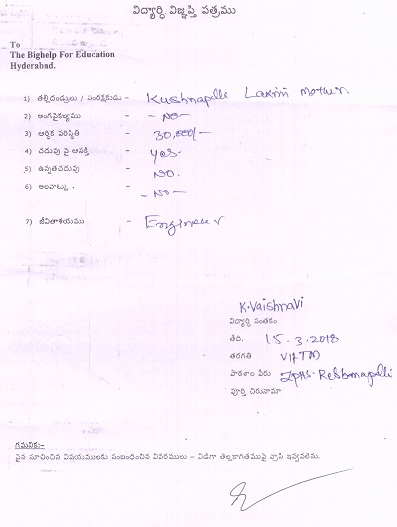 విద్యార్థి విజ్ఞప్తి పత్రము
To
The Bighelp For Education
Hyderabad.
1) తల్లిదండ్రులు / సంరక్షకుడు - Kushnapalli Laxmi Mother.
2) అంగవైకల్యము - - No -
3) ఆర్థిక పరిస్థితి - 30,000/-
4) చదువు పై ఆసక్తి - yes-
5) ఉన్నతచదువు - No.
6) అలవాట్లు - - No -
7) జీవితాశయము - Engineer
K.Vaishnavi
విద్యార్థి సంతకం
తేది. 15.3.2018
తరగతి VIITM
పాఠశాల పేరు ZPHS.
పూర్తి చిరునామా
గమనిక:-
పైన సూచించిన విషయములకు సంబంధించిన వివరములు - విడిగా తెల్లకాగితముపై వ్రాసి ఇవ్వవలెను.